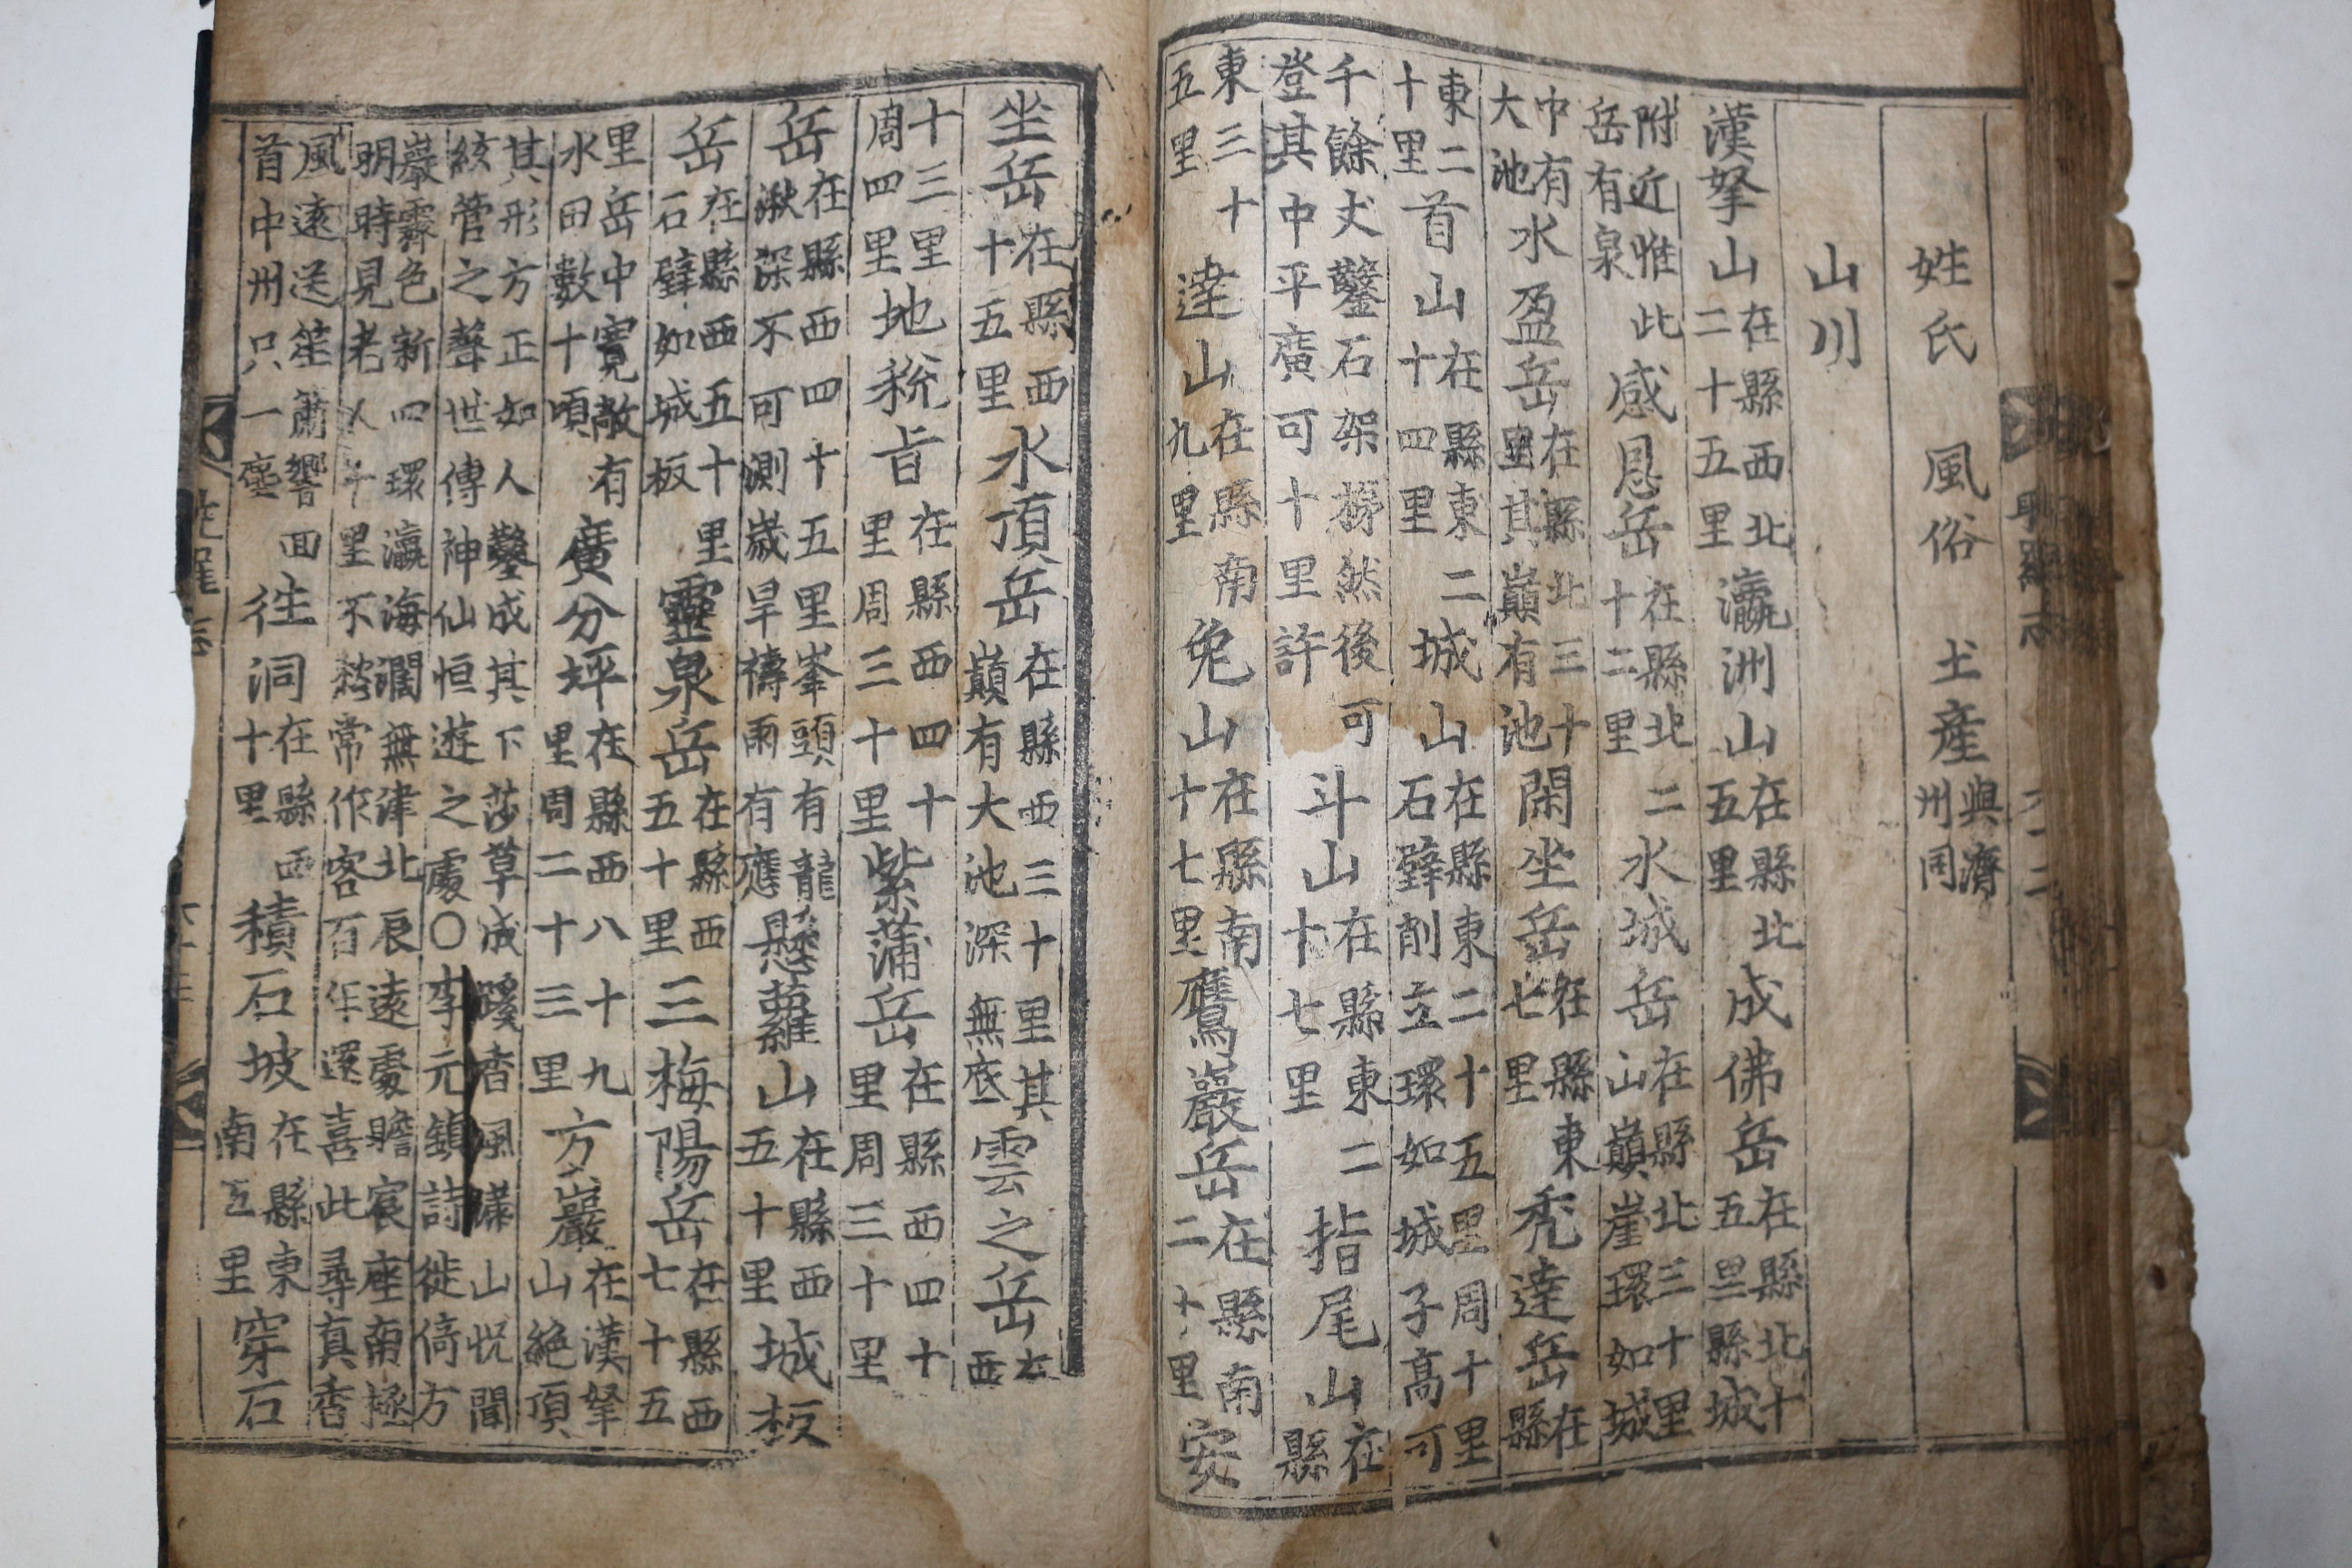 姓氏 風俗 土産與濟州同
山川
漢拏山在縣西北二十五里瀛洲山在縣北五里成佛岳在縣北十五里縣城
附近惟此岳有泉感恩岳在縣北二十二里水城岳在縣北三十里山巔崖環如城
中有大池水盈岳在縣北三十里其巔有池閑坐岳在縣東七里禿達岳在縣
東二十里首山在縣東二十四里城山在縣東二十五里周十里石壁削立環如城子高可
千餘丈鑿石架然後可登其中平廣可十里許斗山在縣東二十七里指尾山在縣
東三十五里達山在縣南九里兔山在縣南十七里鷹巖岳在縣南二十里安
坐岳在縣西十五里水頂岳在縣西三十里其巔有大池深無底雲之岳在西
十三里周四里地稅旨在縣西四十里周三十里紫蒲岳在縣西四十里周三十里
岳在縣西四十五里峯頭有龍湫深不可測歲旱禱雨有應懸蘿山在縣西五十里城板
岳在縣西五十里石壁如城板靈泉岳在縣西五十里三梅陽岳在縣西七十五
里岳中寬敞有水田數十頃廣分坪在縣西八十九里周二十三里方巖在漢拏山絕頂
其形方正如人鑿成其下莎草成蹊香風山怳聞絃管之聲世傳神仙恒遊之處○李元鎮詩徙倚方
巖霽色新四環瀛海濶無津北辰遠處瞻宸座南極明時見老人千里不愁常作客百年還喜此尋真香
風遠送笙簫響回首中州只一塵往洞在縣西十里積石坡在縣東南五里穿石
耽羅志